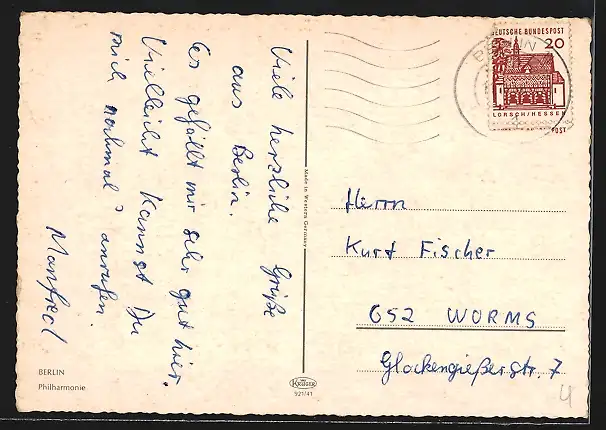 Viele herzliche Grüße
aus Berlin.
Es gefällt mir sehr gut hier.
Vielleicht kannst Du
mich nochmal anrufen.
Manfred
BERLIN
Philharmonie
Made in Western Germany
KRÜGER
921/41
BERLIN
DEUTSCHE BUNDESPOST
20
LORSCH/HESSEN
POST
Herrn
Kurt Fischer
652 WORMS
Glockengießerstr. 7
4